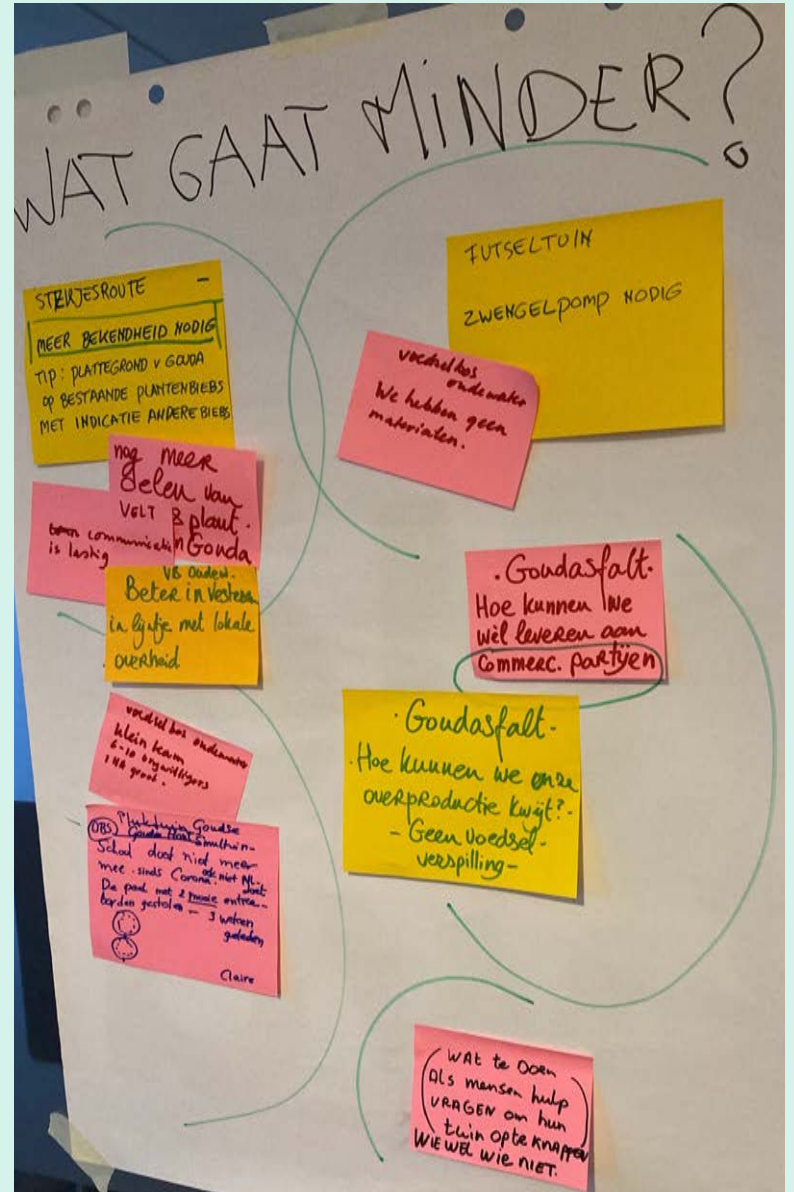 WAT GAAT MINDER?
STEKJESROUTE –
MEER BEKENDHEID NODIG
TIP: PLATTEGROND V GOUDA
OP BESTAANDE PLANTENBIEBS
MET INDICATIE ANDERE BIEBS
nog meer
delen van
VELT & plant.
in Gouda
communicatie
is lastig
VB Oudew.
Beter in
in lijntje met lokale
overheid
voedselbos oudewater
klein team
6-10 vrijwilligers
1 HA groot.
Pluktuin Goudse
OBS
School doet niet meer
mee sinds Corona.
De paal met 2 mooie entree-
borden gestolen – 3 weken
geleden
Claire
FUTSELTUIN
ZWENGELPOMP NODIG
voedselbos
oudewater
We hebben geen
materialen.
· Goudasfalt ·
Hoe kunnen we
wèl leveren aan
Commerc. partijen
· Goudasfalt ·
· Hoe kunnen we onze
overproductie kwijt? -
- Geen voedsel-
verspilling -
WAT te DOEN
Als mensen hulp
VRAGEN om hun
tuin op te KNAPPEN
WIE WEL WIE NIET.